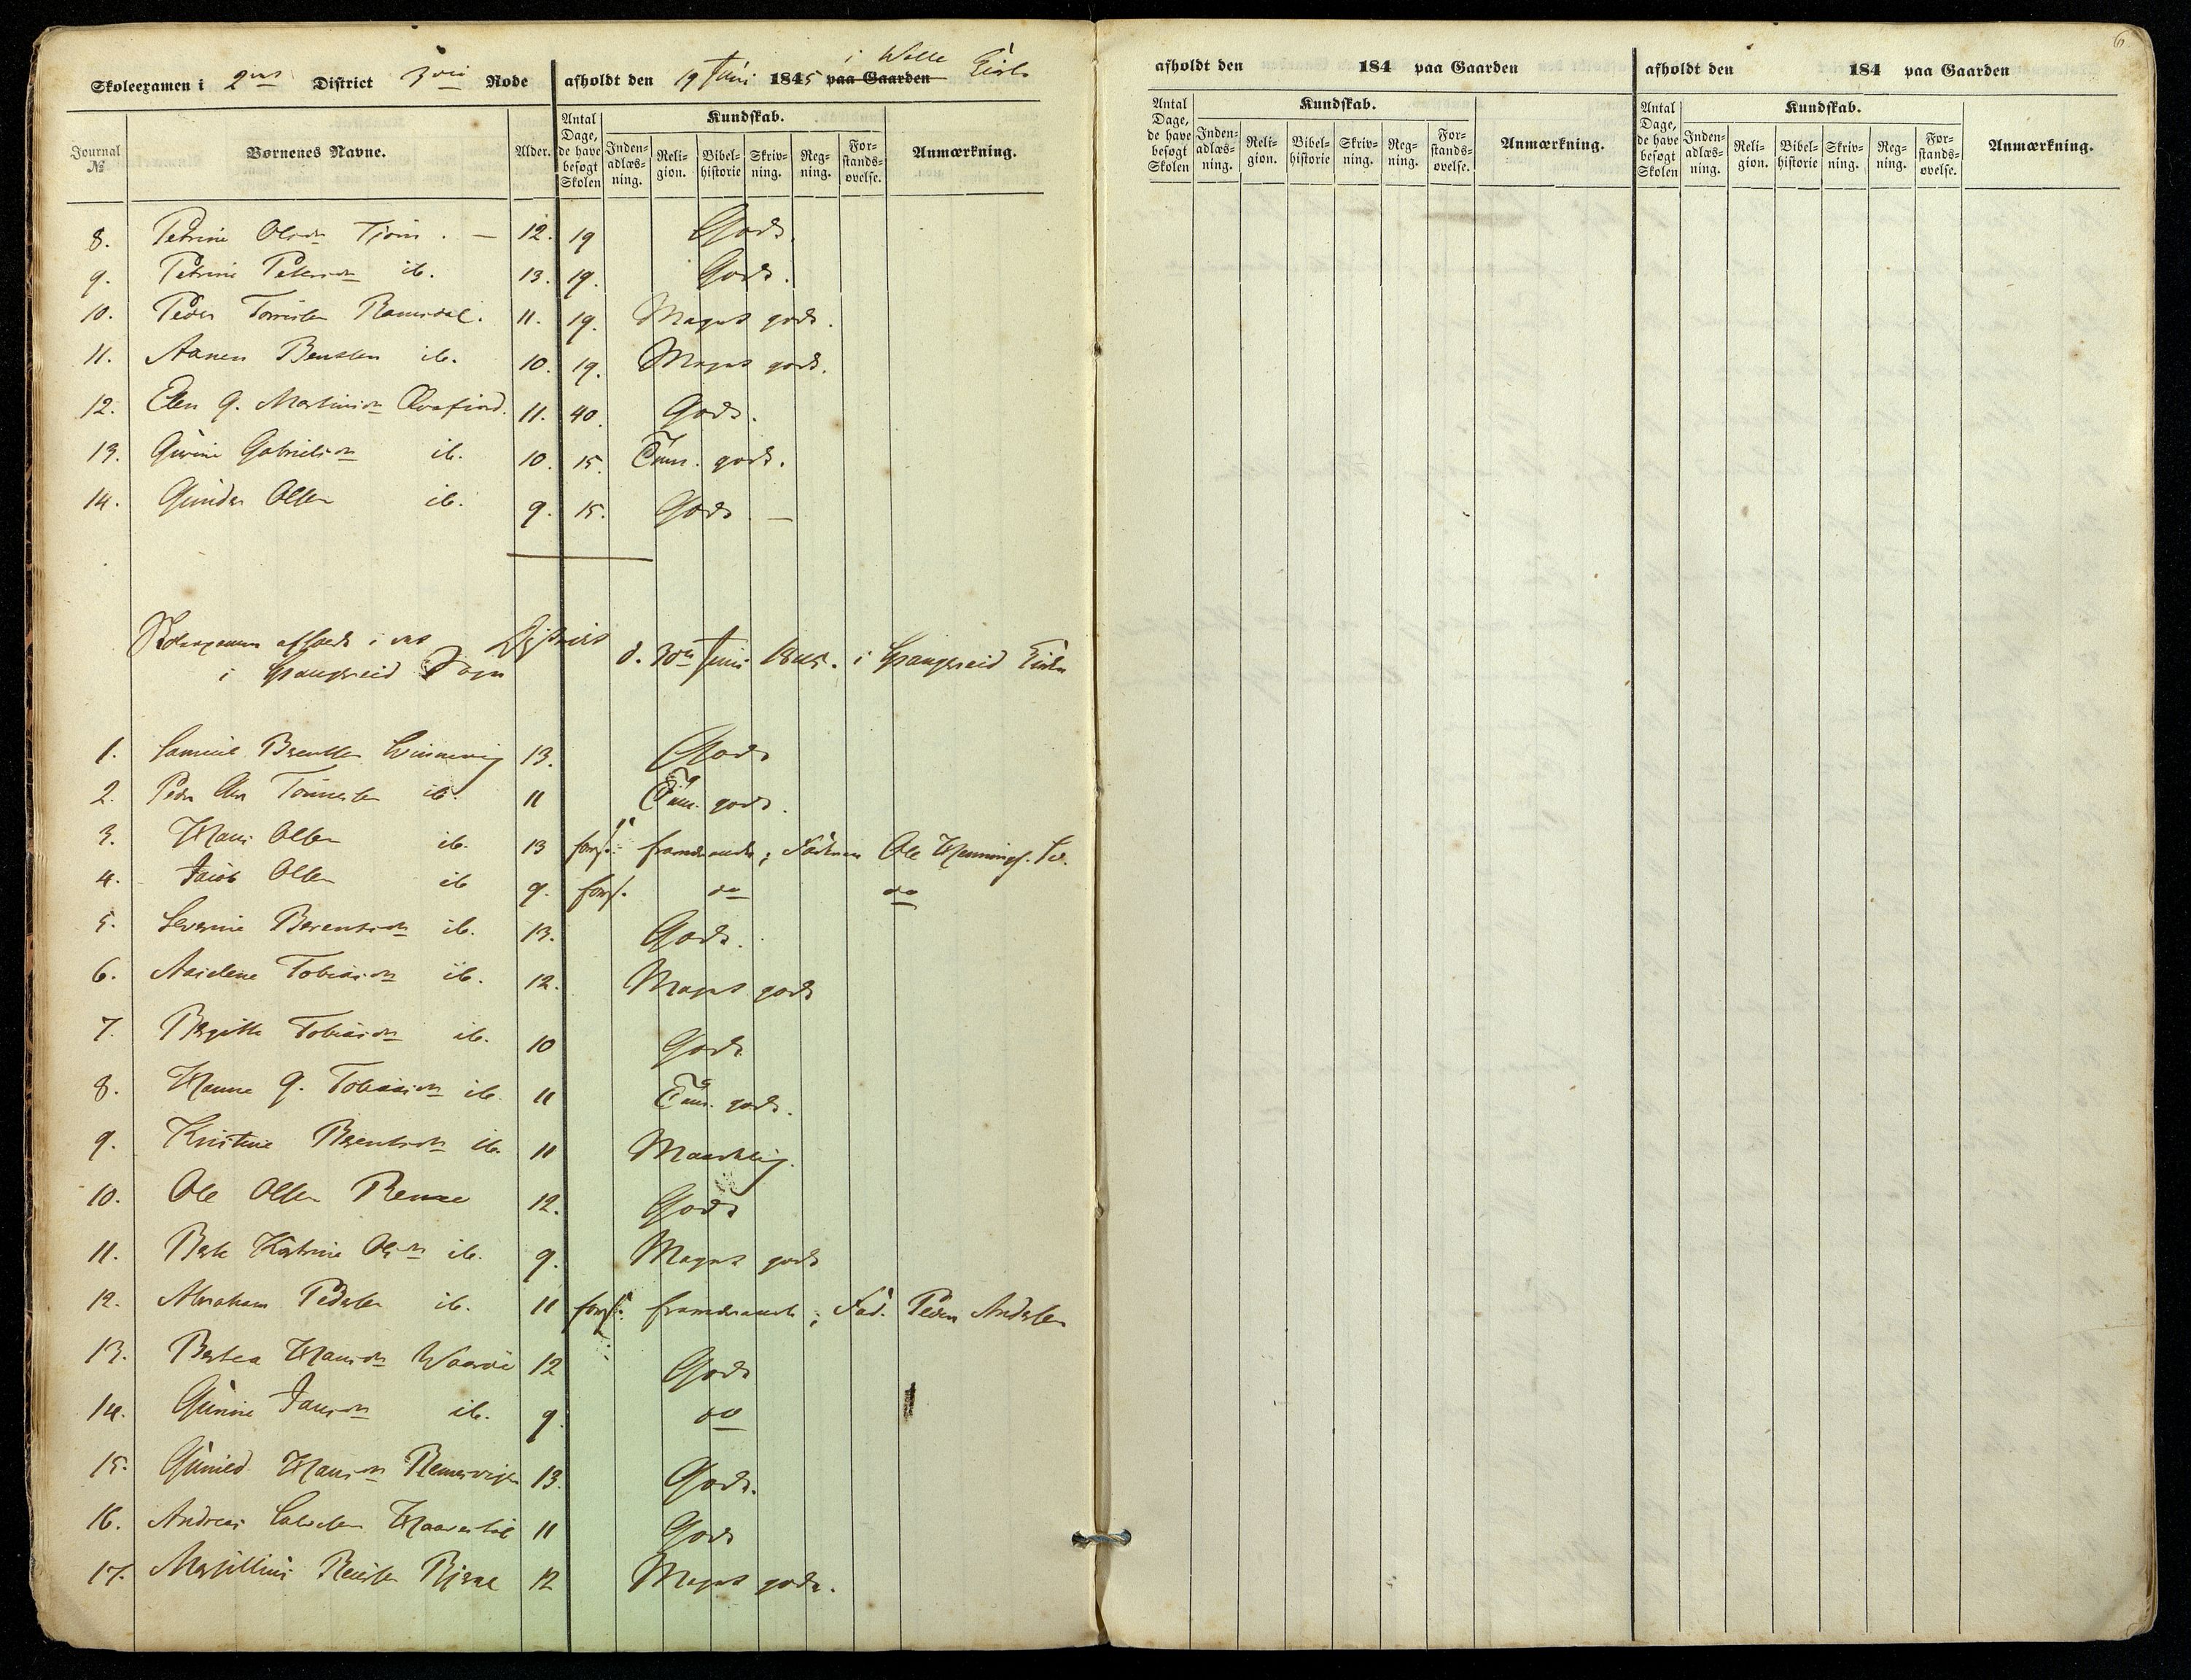 Skoleexamen i 2det District 3die Rode afholdt den 19 Juni 1845 paa Gaarden i Walle Kirke
Journal № Børnenes Navne. Alder. Antal Dage, de have besøgt Skolen Kundskab. Inden-adlæs-ning. Reli-gion. Bibel-historie Skriv-ning. Reg-ning. For-stands-øvelse. Anmærkning.
8. Petrine Olsdr Tjom. — 12. 19 Godt.
9. Petrine Petersdr ib. 13. 19. Godt.
10. Peder Tønnesen Ramsdal. 11. 19. Meget godt.
11. Aanen Bentsen ib. 10. 19. Meget godt.
12. Elen G. Martinsdr 11. 40. Godt.
13. Gabrielsdr ib. 10. 15. Tem. godt.
14. Gunder Olsen ib. 9. 15. Godt —
Skoleexamen afholdt i District d. 30te Juni 1845. i Spangereid Kirke
i Spangereid Sogn
1. Samuel Berntsen 13. Godt
2. Peder Tønnesen ib. 11 Tem. godt.
3. Hans Olsen ib. 13 fors. fremdeles; Faderen Ole
4. Jacob Olsen ib 9. fors. do do
5. Severine Berentsdr ib. 13. Godt.
6. Aaselene Tobiasdr ib. 12. Meget godt
7. Birgitte Tobiasdr ib. 10 Godt
8. Hanne G. Tobiasdr ib. 11 Tem. godt.
9. Kristine Berentsdr ib. 11 Maadelig.
10. Ole Olsen Remme 12. Godt
11. Berte Katrine Olsdr ib. 9. Meget godt
12. Abraham Pedersen ib. 11 fors. fremdeles; Fad. Peder Andersen
13. Bertea Hansdr 12 Godt
14. Gunine Jansdr ib. 9. do
15. Gunild Hansdr Remesvigen 13. Godt.
16. Andreas 11 Godt
17. Reiersen 12 Meget godt.
afholdt den 184 paa Gaarden
Antal Dage, de have besøgt Skolen Kundskab. Inden-adlæs-ning. Reli-gion. Bibel-historie Skriv-ning. Reg-ning. For-stands-øvelse. Anmærkning.
afholdt den 184 paa Gaarden
Antal Dage, de have besøgt Skolen Kundskab. Inden-adlæs-ning. Reli-gion. Bibel-historie Skriv-ning. Reg-ning. For-stands-øvelse. Anmærkning.
6